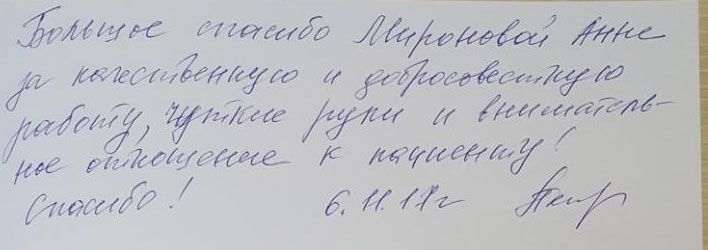 Большое спасибо Мироновой Анне
за качественную и добросовестную
работу, чуткие руки и вниматель-
ное отношение к пациенту!
Спасибо! 6.11.17г